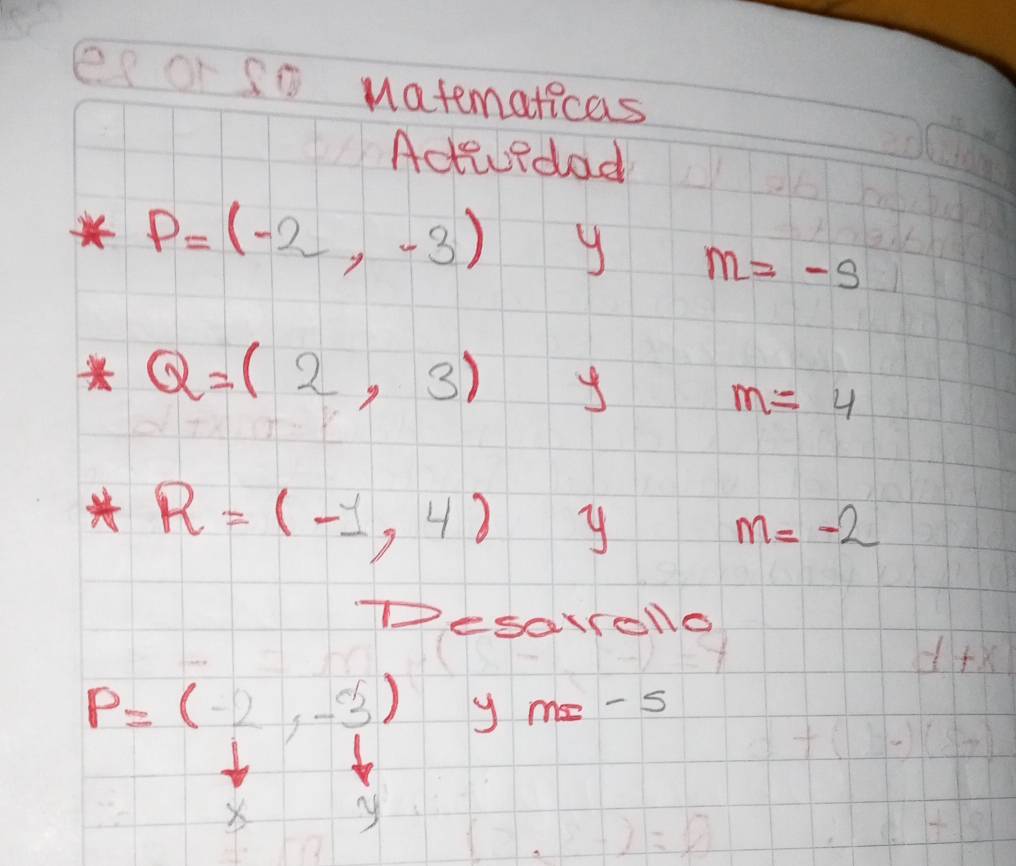 Matematicas
Actividad
* P=(-2, -3) y m= -5
* Q=( 2, 3) y m= 4
* R=(-1, 4) y m= -2
Desarrollo
P=(-2, -3) y m= -5
↓ ↓
x y